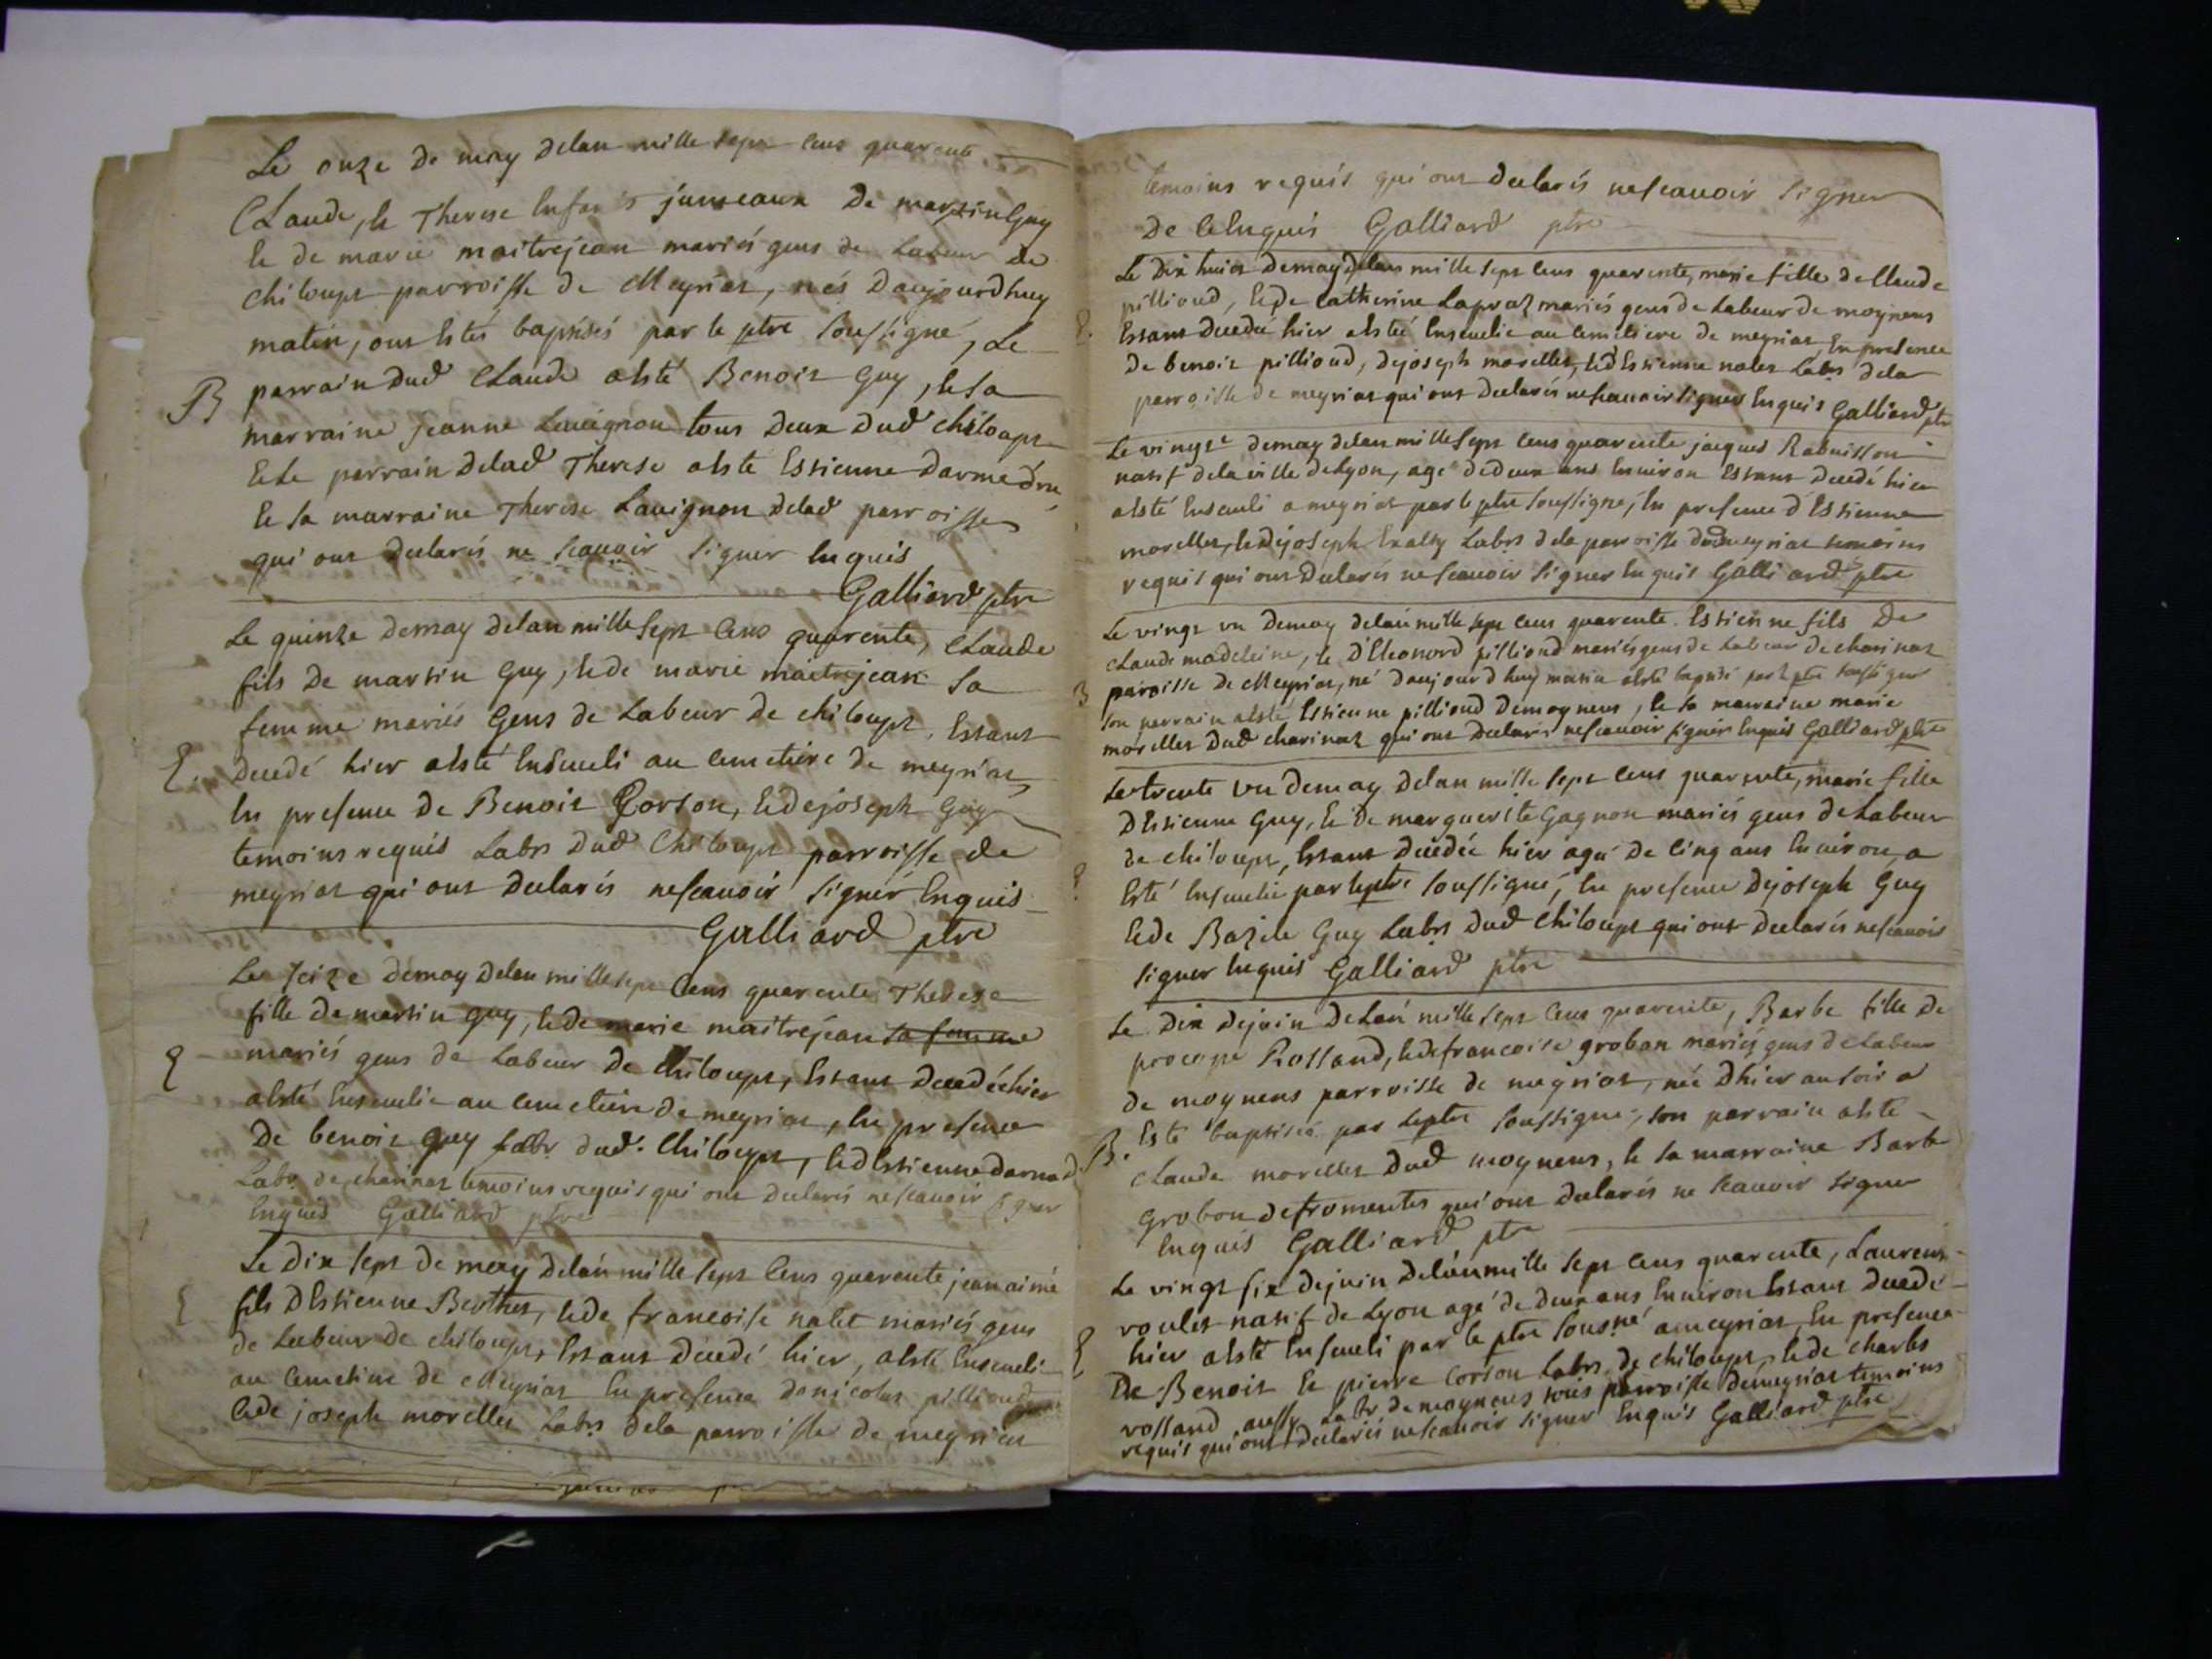 Le onze de may delan mille sept cens quarente
Claude, & Therese Enfans jumeaux de martin Guy
& de marie maitrejean mariés gens de Labeur de
chiloup parroisse de Meyriat, nés daujourdhuy
matin, ont Estés baptisés par le ptre soussigné, Le
B parrain dud Claude aesté Benoit Guy, & sa
marraine jeanne Lauignon tous deux dud chiloup
& Le parrain delad Therese aesté Estienne
& sa marraine Therese Lauignon delad parroisse
qui ont declarés ne scauoir signer Enquis
Galliard ptre
Le quinze demay delan mille sept Cens quarente, Claude
fils de martin Guy, & de marie maitrejean sa
femme mariés Gens de Labeur de chiloup, Estant
E. decedé hier aesté Enseueli au cemetiere de meyriat
En presence de Benoit Corson, & de joseph Guy
temoins requis Labrs dud Chiloup parroisse de
meyriat qui ont declarés nescauoir signer Enquis
Galliard ptre
Le seize demay delan mille sept Cens quarente Therese
fille de martin Guy, & de marie maitrejean sa femme
E mariés gens de Labeur de Chiloup, Estant decedée hier
aesté Enseuelie au cemetiere de meyriat, En presence
De benoit Guy Labr dud. Chiloup, & dEstienne
Labr. de charinas temoins requis qui ont declarés nescauoir signer
Enquis Galliard ptre
Le dix sept de may delan mille sept Cens quarente jean aimé
E fils dEstienne Berthet, & de francoise nalet mariés gens
de Labeur de chiloup, Estant decedé hier, aesté Enseueli
au cemetiere de Meyriat En presence denicolas pillioud
& de joseph morellet Labrs dela parroisse de meyriat
temoins requis qui ont declarés nescauoir signer
De ce Enquis Galliard ptre
Le dix huict demay delan mille sept Cens quarente, marie fille de Claude
pillioud, & de catherine Lapraz mariés gens de Labeur de moynens
E. Estant decedée hier aesteé Enseuelie au cemetiere de meyriat En presence
De benoit pillioud, dejoseph morellet, & dEstienne nalet Labrs dela
parroisse de meyriat qui ont declarés nescauoir signer Enquis Galliard ptre
Le vingt demay delan mille sept Cens quarente jacques Rabuisson
natif dela ville deLyon, agé dedeux ans Enuiron Estant decedé hier
aesté Enseueli a meyriat par le ptre soussigné, En presence dEstienne
morellet, & dejoseph Labrs dela parroisse dudmeyriat temoins
requis qui ont declarés nescauoir signer Enquis Galliard ptre
Le vingt un demay delan mille sept cens quarente. Estienne fils De
Claude madeleine, & dEleonord pilliond mariés gens de Labeur de charinas
B paroisse de Meyriat, né daujourdhuy matin aesté baptisé par le ptre soussigné
son parrain aesté Estienne pilliond demoynens, & sa marraine marie
morellet dud charinas qui ont declarés nescauoir signer Enquis Galliard ptre
Le trente un demay delan mille sept cens quarente, marie fille
DEstienne Guy, & de marguerite Gagnon mariés gens deLabeur
de chiloup, Estant decedée hier agée de Cinq ans Enuiron, a
E Esté Enseuelie par leptre soussigné, En presence dejoseph Guy
& de Bazile Guy Labrs dud Chiloup qui ont declarés nescauoir
signer Enquis Galliard ptre
Le dix dejuin delan mille sept Cens quarente, Barbe fille de
procope Rolland, & defrancoise grobon mariés gens deLabeur
de moynens parroisse de meyriat, née dhier ausoir a
B. Esté baptisée par leptre soussigné, son parrain aesté
Claude morellet dud moynens, & sa marraine Barbe
Grobon defromentes qui ont declarés ne scauoir signer
Enquis Galliard ptre
Le vingt six dejuin delan mille sept cens quarente, Laurent
roulet natif de Lyon agé de deux ans Enuiron Estant decedé
E hier aesté Enseueli par le ptre sousné ameyriat, En presence
De Benoit & pierre Corson Labrs de chiloup, & de charles
rolland aussy Labr demoynens tous parroisse demeyriat temoins
requis qui ont declarés nescauoir signer Enquis Galliard ptre